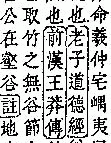 命羲仲宅嵎夷
也老子道德經
也前漢王莽傳
取竹之無谷節
公在壑谷註地